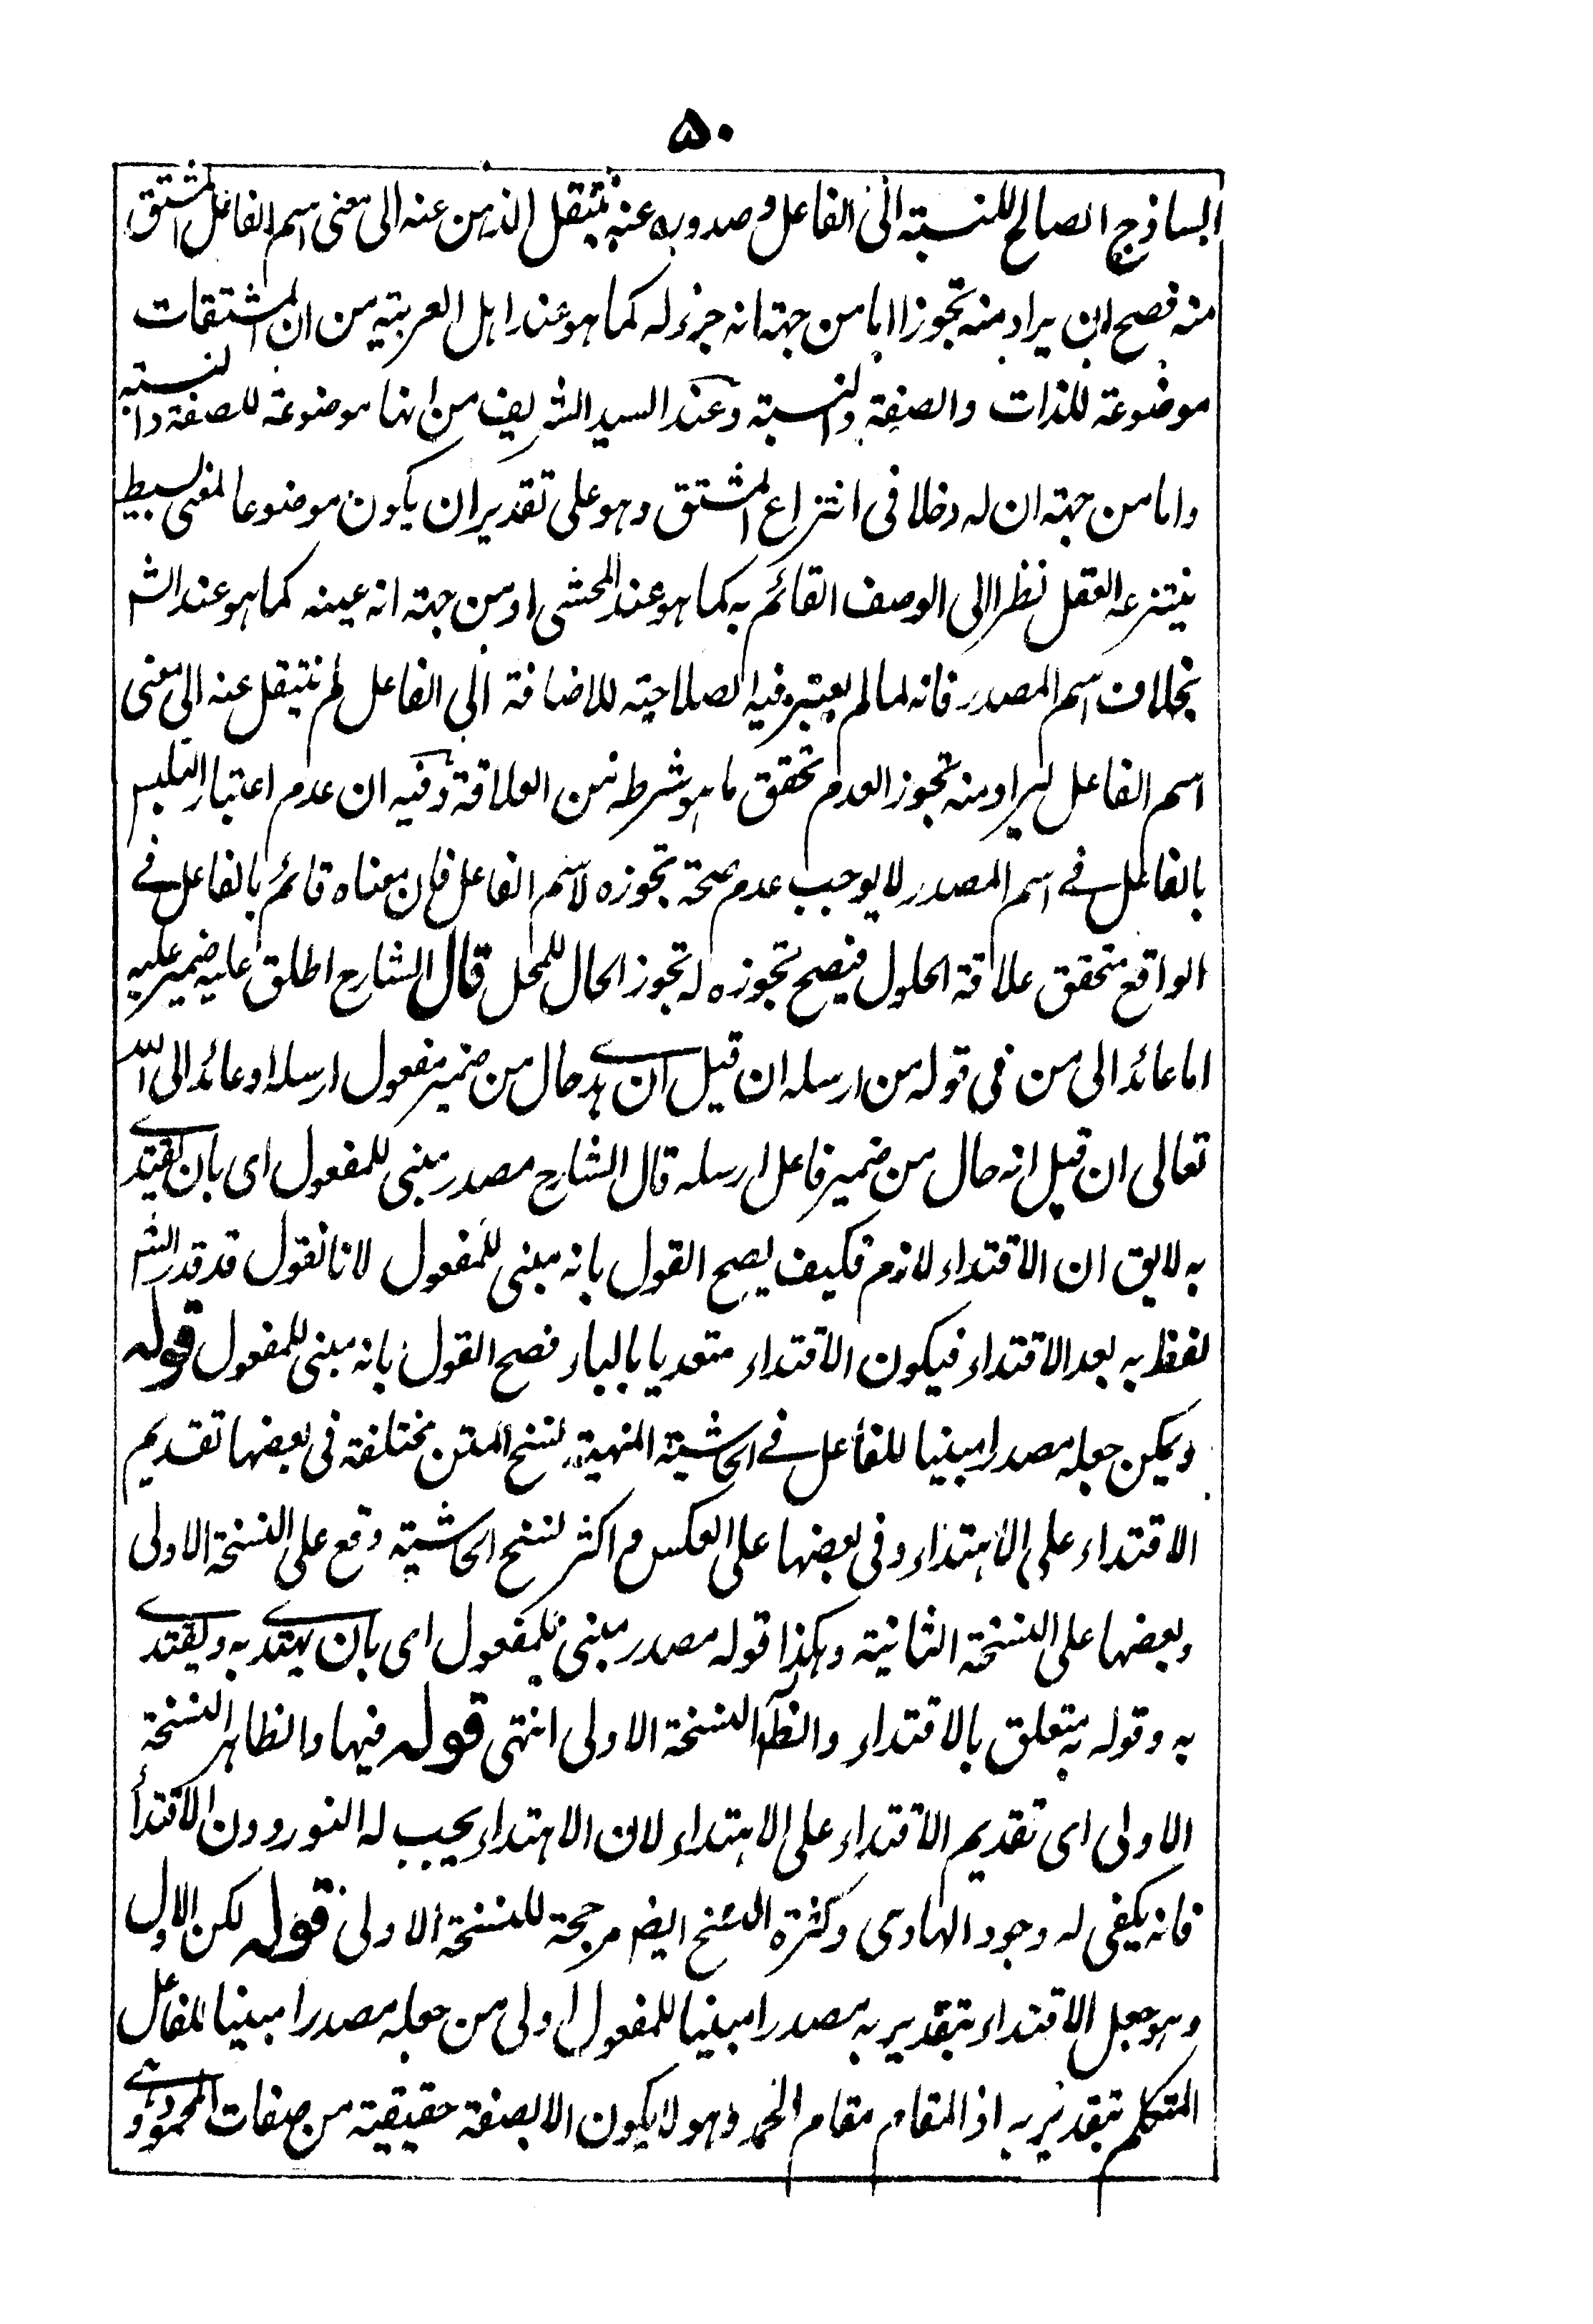 ۵۰
الساذج الصالح للنسبة الى الفاعل و صدوره عنه ينتقل الذهن عنه الى معنى اسم الفاعل المشتق
منه فصح ان يراد منه تجوزا اما من جهة انه جزء له كما هو عند اهل العربية من ان المشتقات
موضوعة للذات والصفة والنسبة وعند السيد الشريف من انها موضوعة للصفة والنسبة
واما من جهة ان له دخلا فى انتزاع المشتق وهو على تقدير ان يكون موضوعا لمعنى بسيط
ينتزعه العقل نظرا الى الوصف القائم به كما هو عند المحشى او من جهة انه عينه كما هو عند الشـ
بخلاف اسم المصدر فانه لما لم يعتبر فيه الصلاحية للاضافة الى الفاعل لم ينتقل عنه الى معنى
اسم الفاعل ليراد منه تجوز العدم تحقق ما هو شرطه من العلاقة وفيه ان عدم اعتبار التلبس
بالفاعل فے اسم المصدر لا يوجب عدم صحة تجوزه لاسم الفاعل فان معناه قائم بالفاعل فے
الواقع متحقق علاقة الحلول فيصح تجوزه له تجوز الحال للمحل قال الشارح اطلق عليه ضمير عليه
اما عائد الى من فى قوله من ارسله ان قيل ان هدے حال من ضمير مفعول ارسله او عائد الى الله
تعالى ان قيل انه حال من ضمير فاعل ارسله قال الشارح مصدر مبنى للمفعول اى بان يقتدے
به لا يق ان الاقتداء لازم فكيف يصح القول بانه مبنى للمفعول لانا نقول قد قدر الشـ
لفظ به بعد الاقتداء فيكون الاقتداء متعديا بالباء فصح القول بانه مبنى للمفعول قوله
ويمكن جعله مصدرا مبنيا للفاعل فے الحاشية المنهية نسخ المتن مختلفة فى بعضها تقديم
الاقتداء على الاهتداء وفى بعضها على العكس و اكثر نسخ الحاشية وقع على النسخة الاولى
وبعضها على النسخة الثانية وهكذا قوله مصدر مبنى للمفعول اى بان يهتدے به ويقتدے
به وقوله به يتعلق بالاقتداء والظ النسخة الاولى انتهى قوله فيها والظاهر النسخة
الاولى اى تقديم الاقتداء على الاهتداء لان الاهتداء يجب له النور دون الاقتداء
فانه يكفى له وجود الهادى وكثرة النسخ ايضا مرجحة للنسخة الاولى قوله لكن الاول
وهو جعل الاقتداء بتقدير به مصدرا مبنيا للمفعول اولى من جعله مصدرا مبنيا للفاعل
المتكلم بتقدير به اذ المقام مقام الحمد وهو لا يكون الا بصفة حقيقية من صفات المحمود